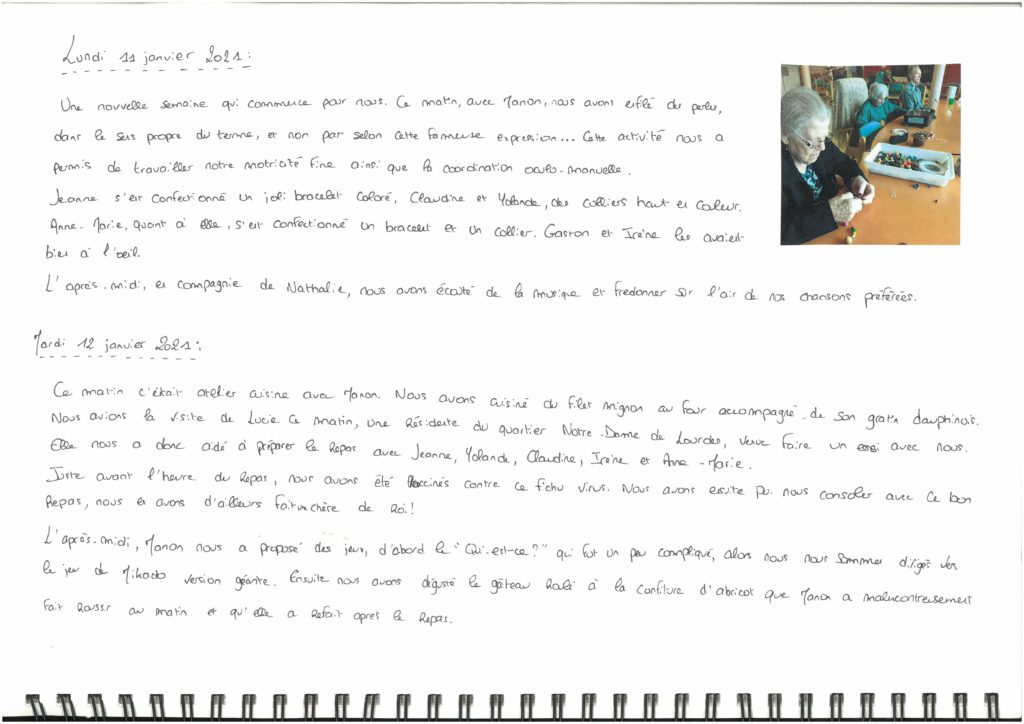 Lundi 11 janvier 2021 :
Une nouvelle semaine qui commence pour nous. Ce matin, avec Manon, nous avons enfilé des perles,
dans le sens propre du terme, et non par selon cette fameuse expression... Cette activité nous a
permis de travailler notre motricité fine ainsi que la coordination oculo-manuelle.
Jeanne s'est confectionné un joli bracelet coloré, Claudine et Yolande, des colliers haut en couleur.
Anne-Marie, quant à elle, s'est confectionné un bracelet et un collier. Gaston et Irène les avaient
bien à l'oeil.
L'après-midi, en compagnie de Nathalie, nous avons écouté de la musique et fredonner sur l'air de nos chansons préférées.
Mardi 12 janvier 2021 :
Ce matin c'était atelier cuisine avec Manon. Nous avons cuisiné du filet mignon au four accompagné de son gratin dauphinois.
Nous avions la visite de Lucie ce matin, une résidente du quartier Notre-Dame de Lourdes, venue faire un essai avec nous.
Elle nous a donc aidé à préparer le repas avec Jeanne, Yolande, Claudine, Irène et Anne-Marie.
Juste avant l'heure du repas, nous avons été vaccinés contre ce fichu virus. Nous avons ensuite pu nous consoler avec ce bon
repas, nous en avons d'ailleurs fait une chère de Roi !
L'après-midi, Manon nous a proposé des jeux, d'abord le "Qui-est-ce ?" qui fut un peu compliqué, alors nous nous sommes dirigés vers
le jeu de Mikado version géante. Ensuite nous avons dégusté le gâteau roulé à la confiture d'abricot que Manon a malencontreusement
fait roussir au matin et qu'elle a refait après le repas.